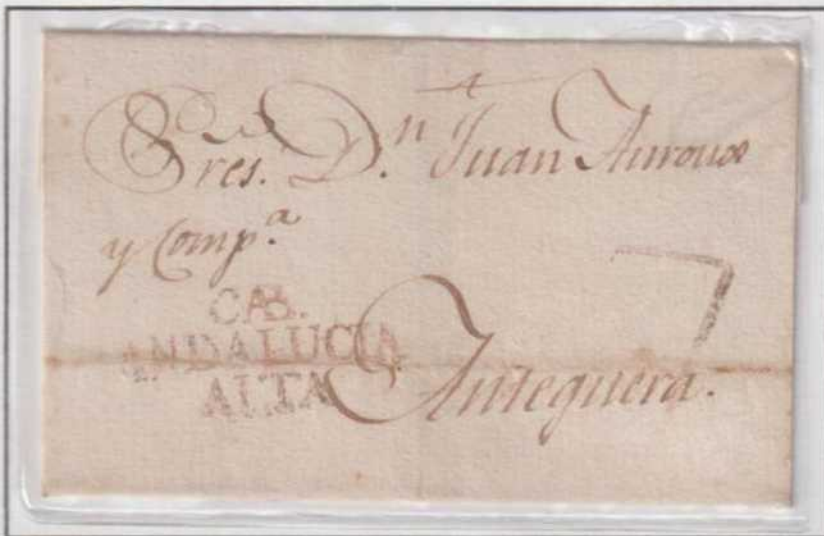 Sres. D.n Juan
y Comp.a
7
CAB.
ANDALUCIA
ALTA
Antequera.